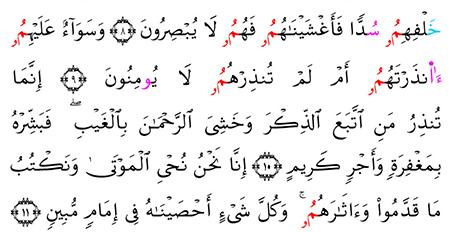 خَلْفِهِمُۥ سُدًّا فَأَغْشَيْنَاهُمُۥ فَهُمُۥ لَا يُبْصِرُونَ ٨ وَسَوَآءٌ عَلَيْهِمُۥ
ءَا۬نذَرْتَهُمُۥ أَمْ لَمْ تُنذِرْهُمُۥ لَا يُومِنُونَ ٩ إِنَّمَا
تُنذِرُ مَنِ ٱتَّبَعَ ٱلذِّكْرَ وَخَشِيَ ٱلرَّحْمَٰنَ بِٱلْغَيْبِۖ فَبَشِّرْهُ
بِمَغْفِرَةٍ وَأَجْرٍ كَرِيمٍ ١٠ إِنَّا نَحْنُ نُحْيِ ٱلْمَوْتَىٰ وَنَكْتُبُ
مَا قَدَّمُوا۟ وَءَاثَٰرَهُمُۥۚ وَكُلَّ شَيْءٍ أَحْصَيْنَٰهُ فِي إِمَامٍ مُّبِينٍ ١١